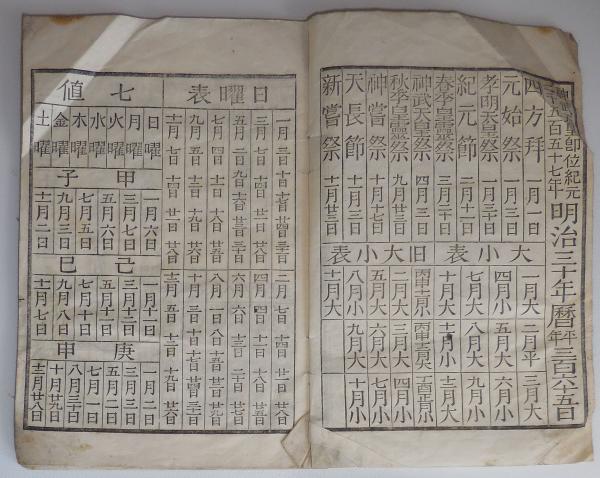 皇即位紀元二千五百五十七年 明治三十年暦 平年 三百六十五日
四方拝 一月一日
元始祭 一月三日
孝明天皇祭 一月三十日
紀元節 二月十一日
春季皇霊祭 三月二十日
神武天皇祭 四月三日
秋季皇霊祭 九月廿三日
神嘗祭 十月十七日
天長節 十一月三日
新嘗祭 十一月廿三日
大小表
一月大 二月平 三月大
四月小 五月大 六月小
七月大 八月大 九月小
十月大 十一月小 十二月大
旧大小表
丙申十一月小 丙申十二月大 丁酉正月小
二月大 三月大 四月小
五月大 六月大 七月小
八月小 九月大 十月小
十一月大
日曜表
一月三日 十日 十七日 廿四日 三十一日 二月七日 十四日 廿一日 廿八日
三月七日 十四日 廿一日 廿八日 四月四日 十一日 十八日 廿五日
五月二日 九日 十六日 廿三日 三十日 六月六日 十三日 二十日 廿七日
七月四日 十一日 十八日 廿五日 八月一日 八日 十五日 廿二日 廿九日
九月五日 十二日 十九日 廿六日 十月三日 十日 十七日 廿四日 三十一日
十一月七日 十四日 廿一日 廿八日 十二月五日 十二日 十九日 廿六日
七値
日曜
月曜
火曜
水曜
木曜
金曜
土曜
甲子
一月六日
三月七日
五月六日
七月五日
九月三日
十一月二日
己巳
一月十一日
三月十二日
五月十一日
七月十日
九月八日
十一月七日
庚申
一月二日
三月三日
五月二日
七月一日
八月三十日
十月廿九日
十二月廿八日